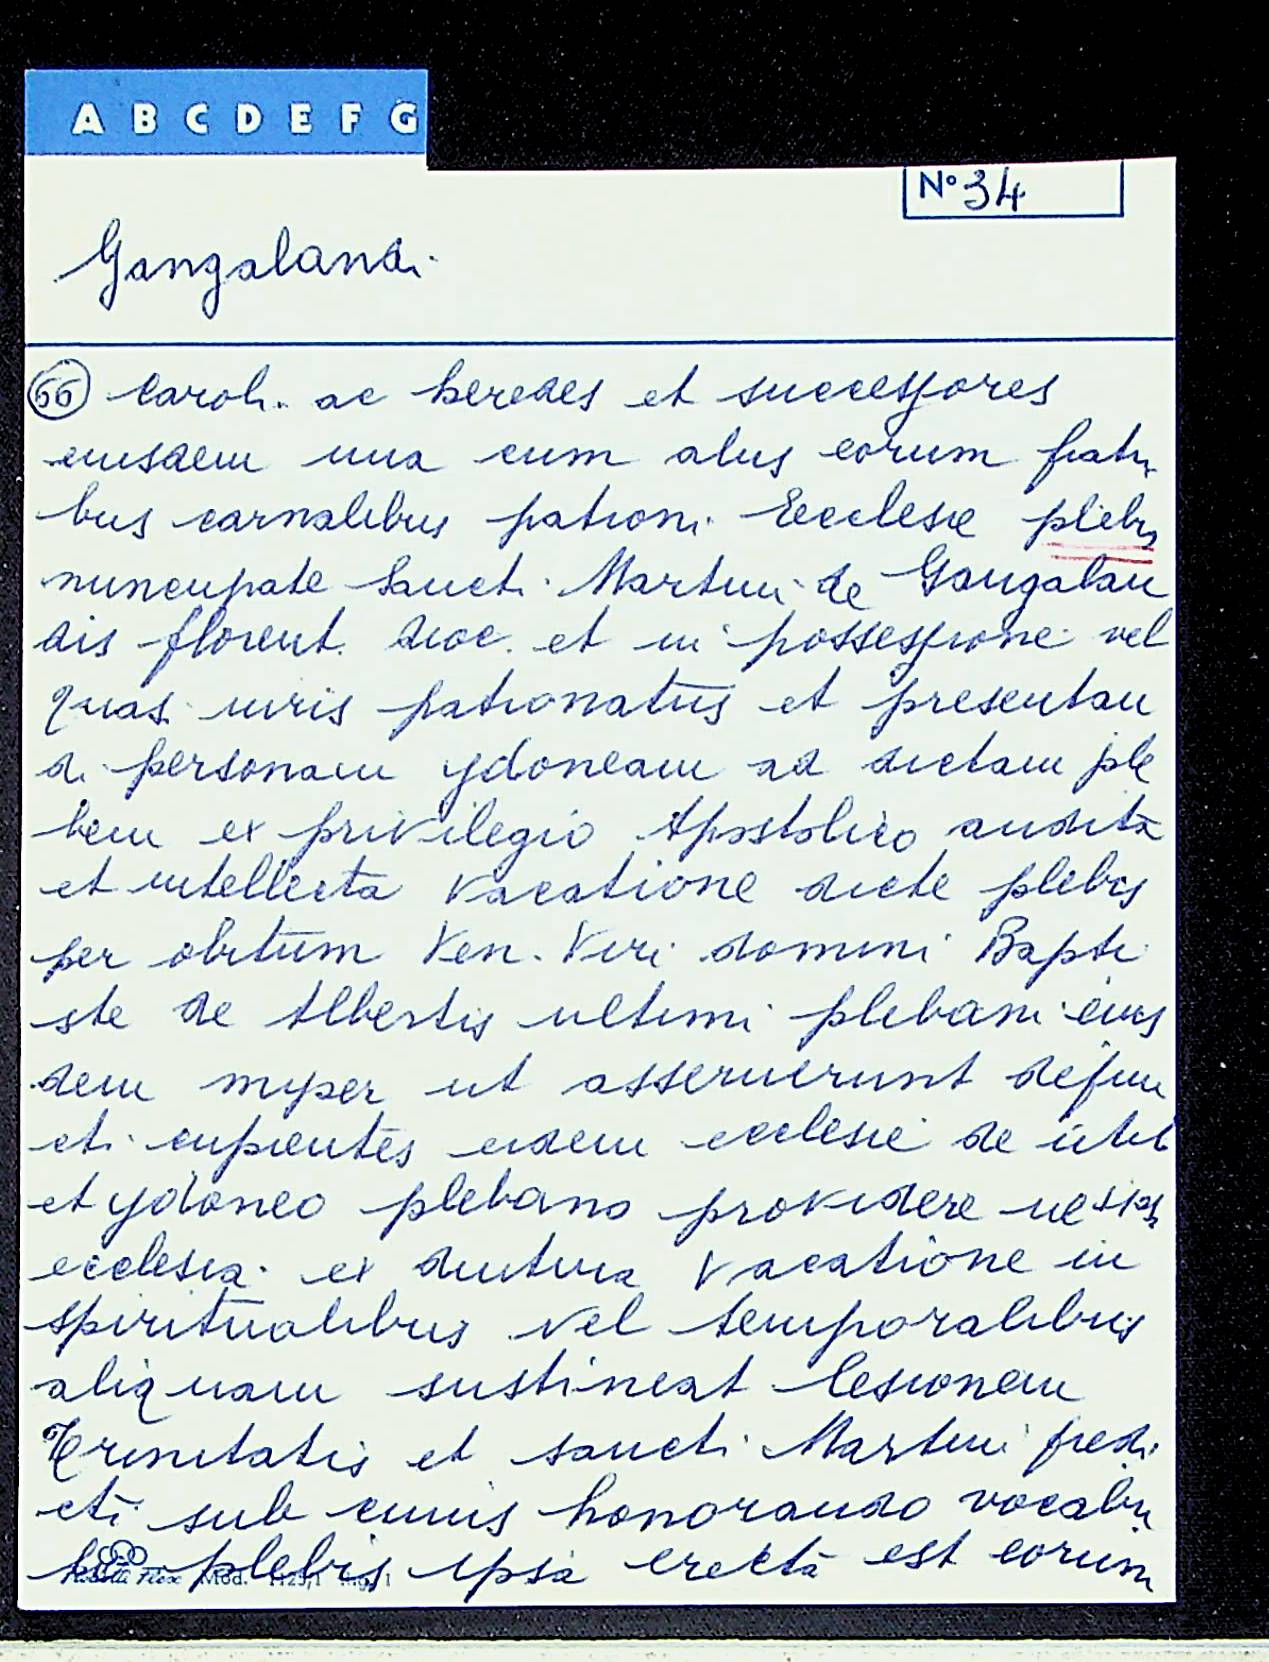 A B C D E F G
N° 34
Gangalandi
66 Caroli ac heredes et successores
eiusdem una cum aliis eorum fratri
bus carnalibus patroni Ecclesie plebis
nuncupate Sancti Martini de Gangalan
dis florent. dioc. et in possessione vel
quasi iuris patronatus et presentan
di personam ydoneam ad dictam ple
bem ex privilegio Apostolico audita
et intellecta vacatione dicte plebis
per obitum Ven. Viri domini Bapti
ste de Albertis ultimi plebani eius
dem nuper ut asseruerunt defun
cti cupientes eidem ecclesie de utili
et ydoneo plebano providere ne
ecclesia ex diutura vacatione in
spiritualibus vel temporalibus
aliquam sustineat lesionem
Trinitatis et sancti Martini predi
cti sub cuius honorando vocabu
lo plebis ipsa erecta est eorum
Mod. 1125/1